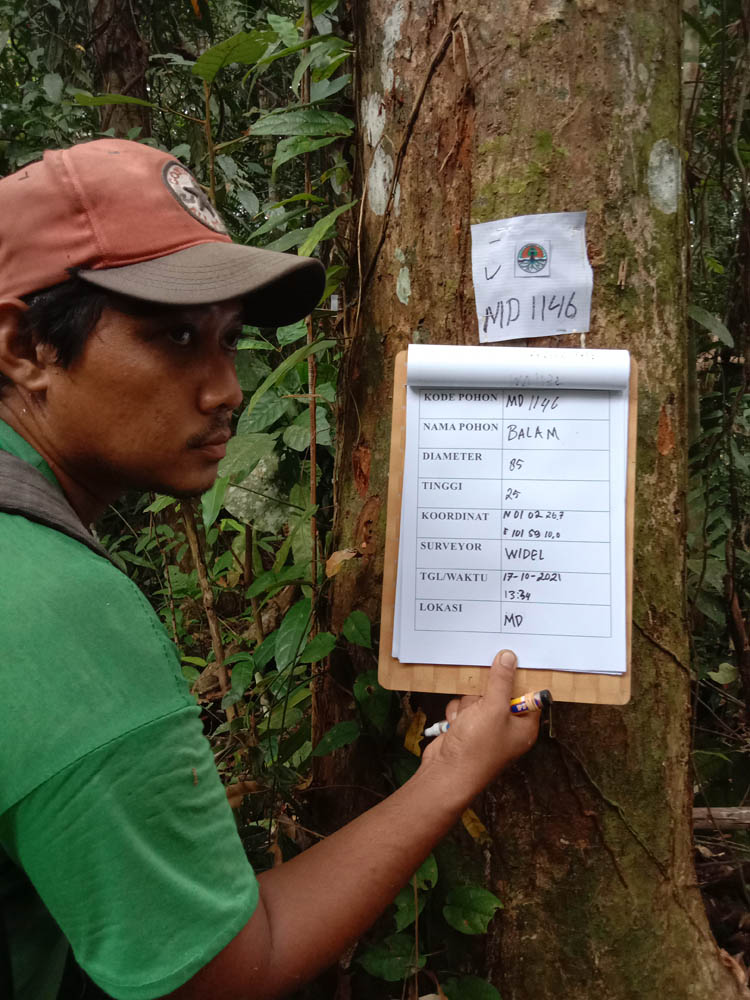 MD 1146
KODE POHON MD 1146
NAMA POHON BALAM
DIAMETER 85
TINGGI 25
KOORDINAT N 01 02 26,7
E 101 59 10,0
SURVEYOR WIDEL
TGL/WAKTU 17-10-2021
13:34
LOKASI MD